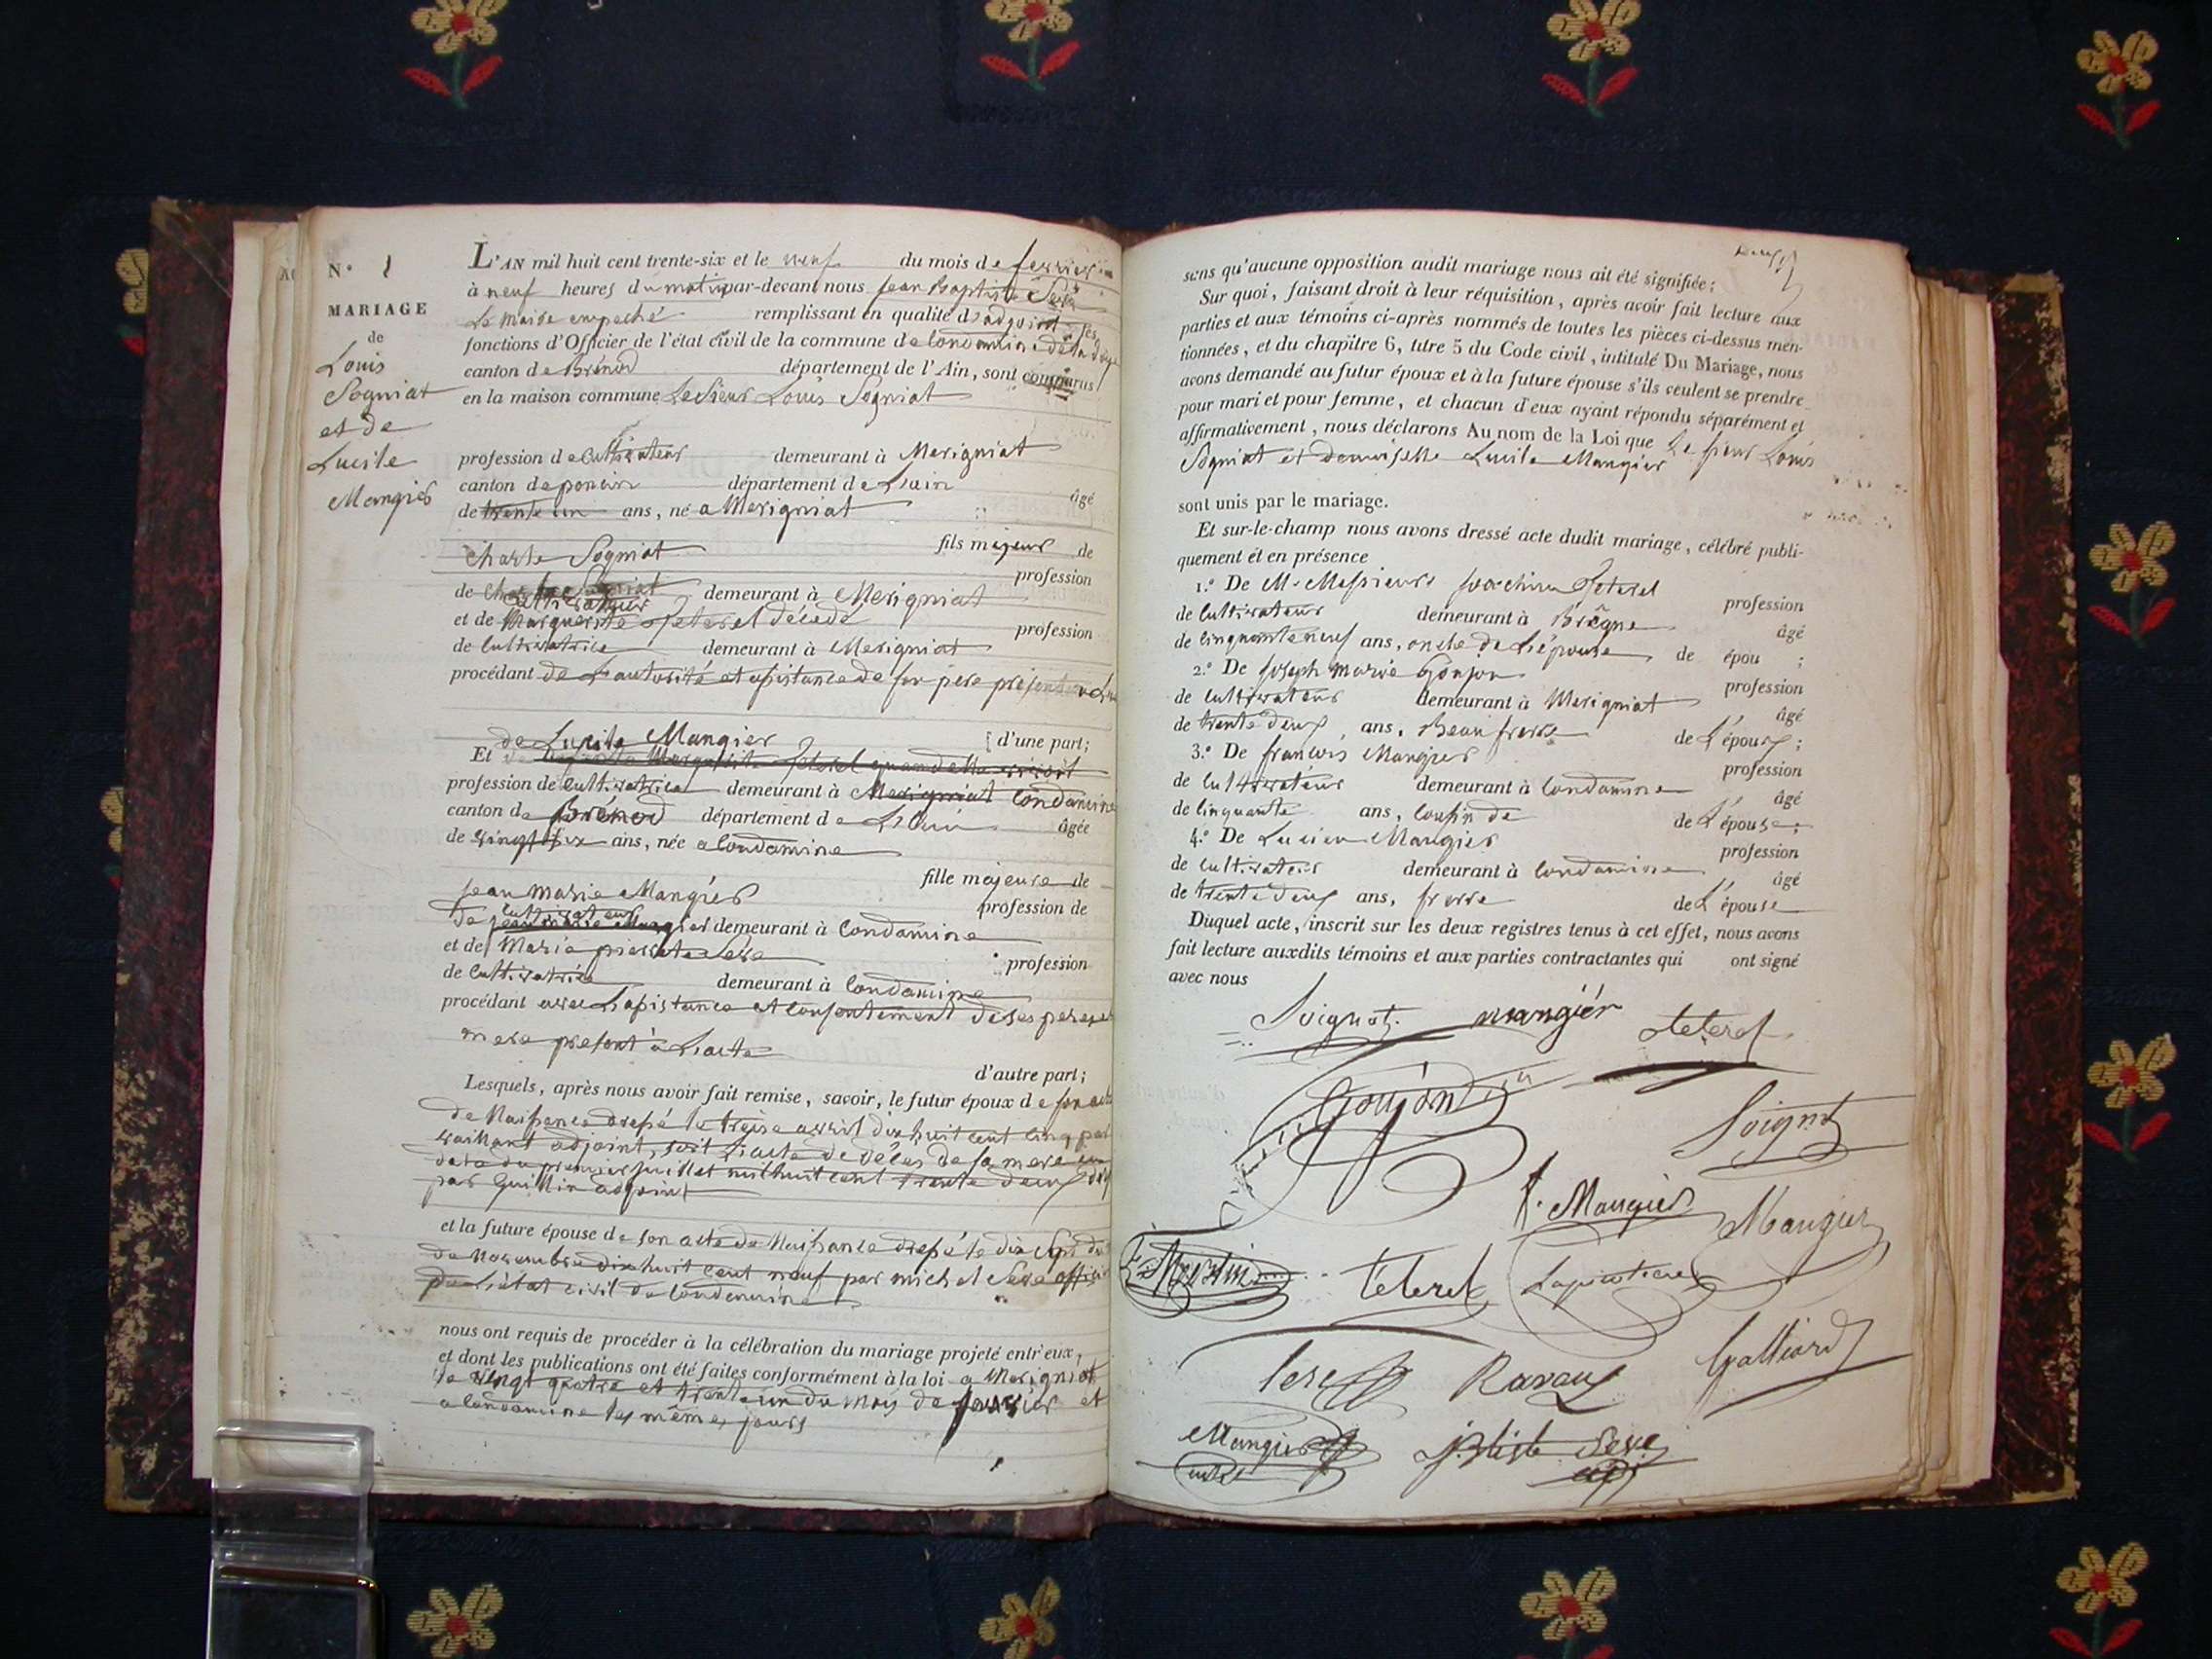 N.° 1
MARIAGE
de
Louis
Sogniat
et de
Lucile
Mangier
L'AN mil huit cent trente-six et le neuf du mois de fevrier
à neuf heures du matin par-devant nous Jean Baptiste Sève
Le Maire empeché remplissant en qualité d'adjoint les
fonctions d'Officier de l'état civil de la commune de Condamine de la Doye
canton de Brénod département de l'Ain, sont comparus
en la maison commune Le Sieur Louis Sogniat
profession de Cultivateur demeurant à Merigniat
canton de poncin département de L'ain âgé
de trente un ans, né a Merigniat
fils majeur de
Charle Sogniat profession
de cultivateur demeurant à Merigniat
et de Marguerite Teterel décédé profession
de Cultivatrice demeurant à Merigniat
procédant de L'autorité et asistance de son père présent
d'une part;
Et de Lucile Mangier
profession de Cultivatrice demeurant à Merigniat Condamine
canton de Brénod département de L'ain âgée
de vingt six ans, née a Condamine
fille majeure de
Jean Marie Mangier profession de
de cultivateur demeurant à Condamine
et de Marie pierrete Sève profession
de Cultivatrice demeurant à Condamine
procédant avec L'asistance et consentement de ses pere et
mere present à L'acte
d'autre part;
Lesquels, après nous avoir fait remise, savoir, le futur époux de son acte
de Naisance dresé le treise avril dix huit cent cinq par
vaillant adjoint, soit L'acte de décès de sa mere en
date du premier juillet mil huit cent trente deux
par Guillin adjoint
et la future épouse de son acte de Naisance dresé le dix sept du
de Novembre dix huit cent neuf par michel Sève officier
de L'état civil de Condamine
nous ont requis de procéder à la célébration du mariage projeté entr'eux,
et dont les publications ont été faites conformément à la loi a Merigniat
le vingt quatre et trente un du mois de janvier et
a Condamine les mêmes jours
sans qu'aucune opposition audit mariage nous ait été signifiée;
Sur quoi, faisant droit à leur réquisition, après avoir fait lecture aux
parties et aux témoins ci-après nommés de toutes les pièces ci-dessus men-
tionnées, et du chapitre 6, titre 5 du Code civil, intitulé Du Mariage, nous
avons demandé au futur époux et à la future épouse s'ils veulent se prendre
pour mari et pour femme, et chacun d'eux ayant répondu séparément et
affirmativement, nous déclarons Au nom de la Loi que Le sieur Louis
Sogniat et demoiselle Lucile Mangier
sont unis par le mariage.
Et sur-le-champ nous avons dressé acte dudit mariage, célébré publi-
quement et en présence
1.° De M. Messieurs Joachim Teterel profession
de Cultivateur demeurant à âgé
de Cinquante neuf ans, oncle de L'épouse de épou ;
2.° De Joseph Marie Gonjon profession
de Cultivateur demeurant à Merigniat âgé
de trente deux ans, Beau frere de L'époux ;
3.° De francois Mangier profession
de Cultivateur demeurant à Condamine âgé
de Cinquante ans, Cousin de de L'épouse;
4.° De Lucien Mangier profession
de Cultivateur demeurant à Condamine âgé
de trente deux ans, frerre de L'épouse
Duquel acte, inscrit sur les deux registres tenus à cet effet, nous avons
fait lecture auxdits témoins et aux parties contractantes qui ont signé
avec nous
Soignat mangiér teterel
Goujon
Soignat
f. Mangier Mangier
Teterel
Sève Raveux Galliard
Mangier J. Btiste Sève